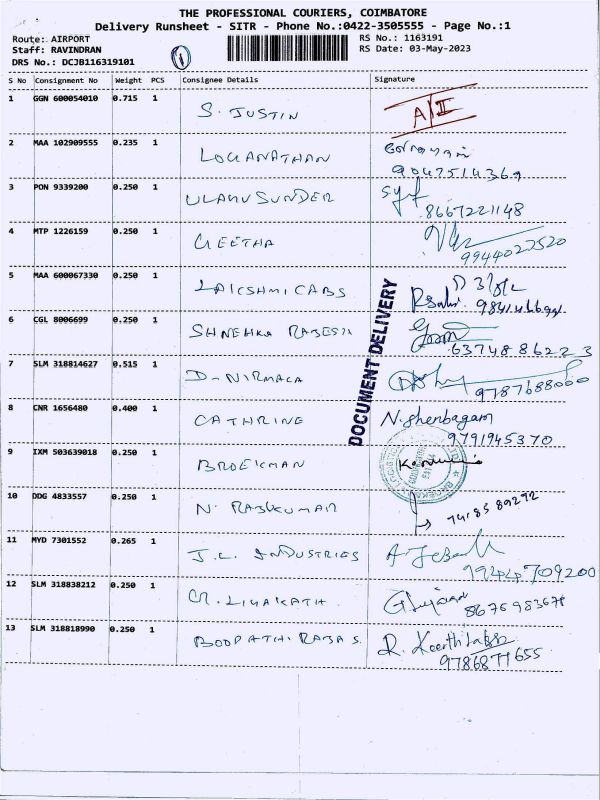 THE PROFESSIONAL COURIERS, COIMBATORE
Delivery Runsheet - SITR - Phone No.:0422-3505555 - Page No.:1
Route: AIRPORT RS No.: 1163191
Staff: RAVINDRAN RS Date: 03-May-2023
DRS No.: DCJB116319101
S No Consignment No Weight PCS Consignee Details Signature
1 GGN 600054010 0.715 1 S. JUSTIN A/II
2 MAA 102909555 0.235 1 LOGANATHAN
9047514369
3 PON 9339200 0.250 1 ULAGU SUNDER
8667221148
4 MTP 1226159 0.250 1 GEETHA
9944022520
5 MAA 600067330 0.250 1 LAKSHMI CABS
6 CGL 8006699 0.250 1 SHNEHKA RAJESH
6374886223
7 SLM 318814627 0.515 1 D. NIRMALA
9787688000
DOCUMENT DELIVERY
8 CNR 1656480 0.400 1 CATHRINE N. Shenbagam
9791945370
9 IXM 503639018 0.250 1 BROEKMAN
10 DDG 4833557 0.250 1 N. RAJKUMAR
7418589292
11 MYD 7301552 0.265 1 J.L. INDUSTRIES
9944709200
12 SLM 318838212 0.250 1
13 SLM 318818990 0.250 1 BOOPATHI RAJA S.
9786871655